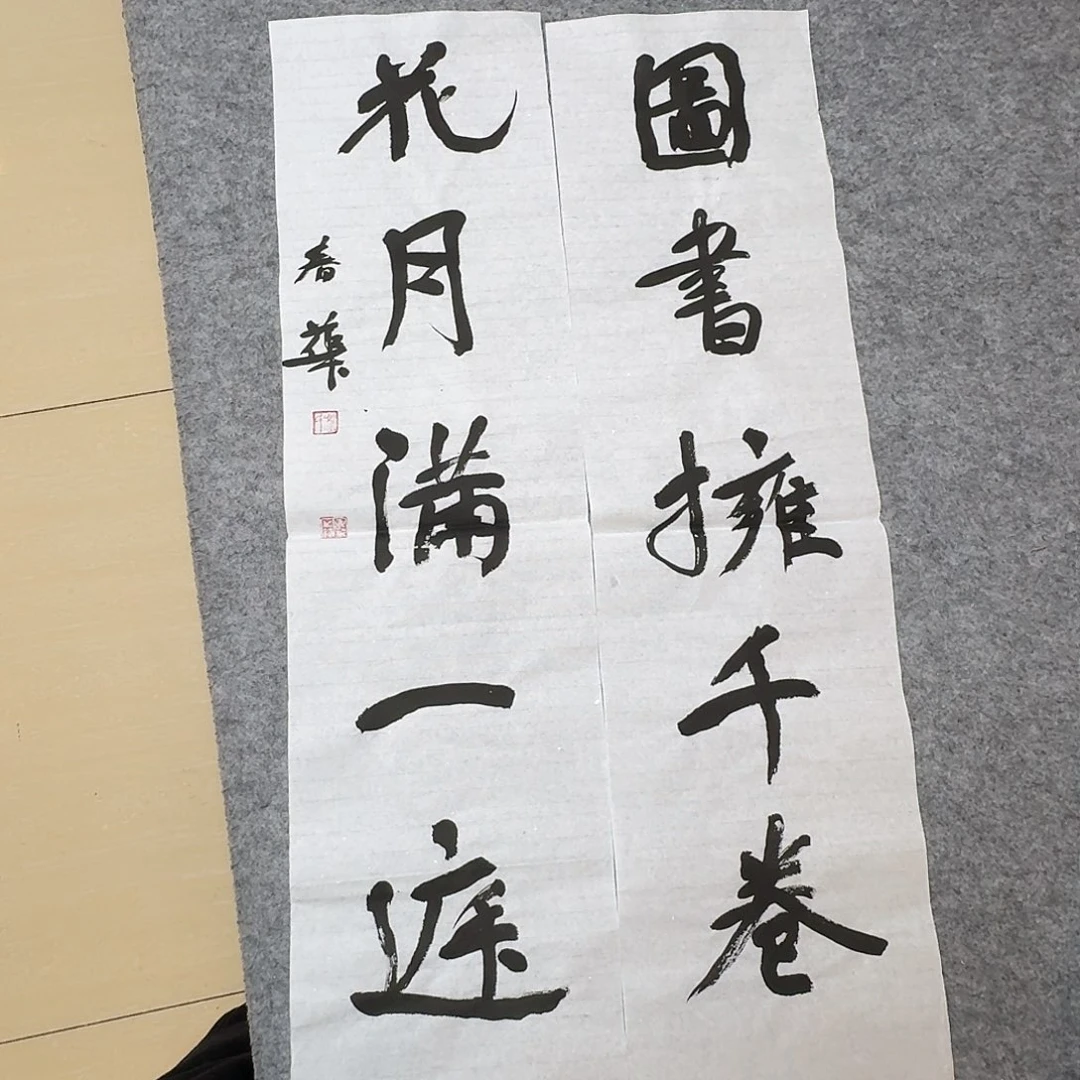 圖書擁千卷
花月滿一庭
春華